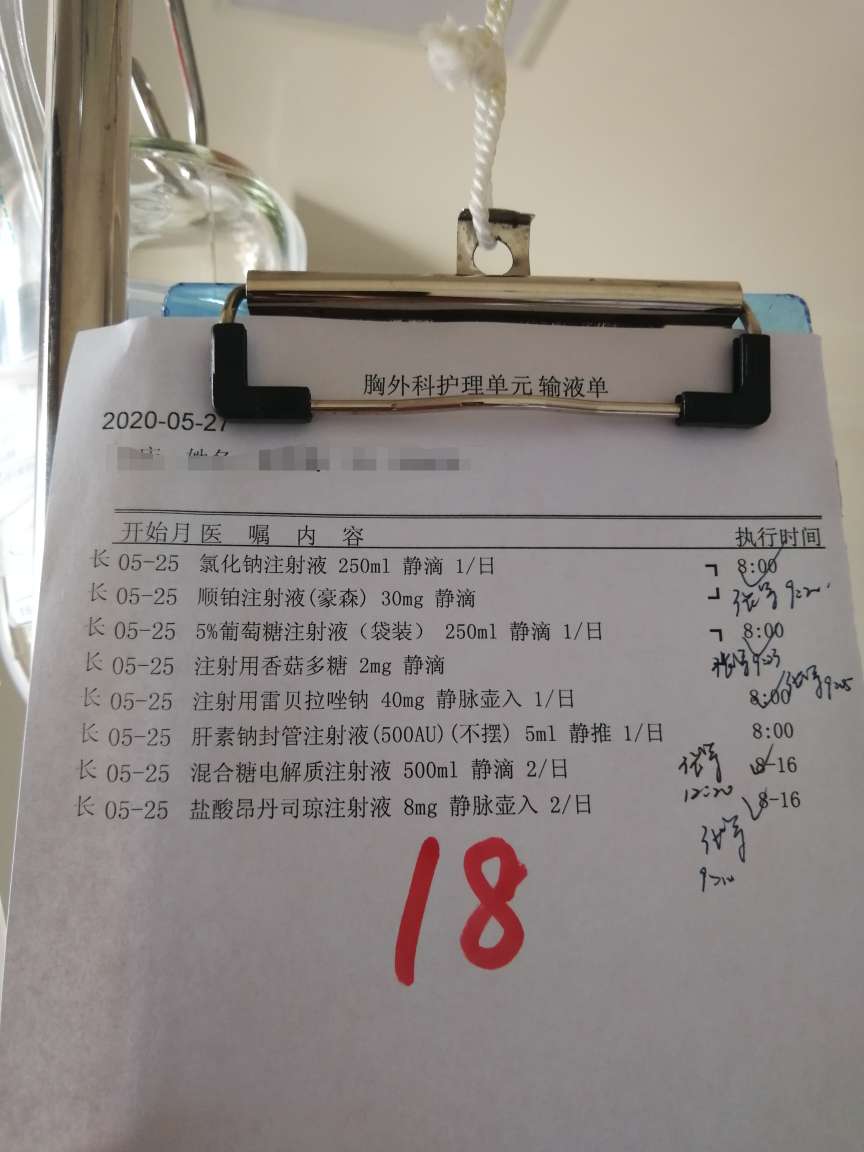 胸外科护理单元输液单
2020-05-27
开始月 医 嘱 内 容 执行时间
长 05-25 氯化钠注射液 250ml 静滴 1/日 ┐ 8:00
长 05-25 顺铂注射液(豪森) 30mg 静滴 ┘
长 05-25 5%葡萄糖注射液（袋装） 250ml 静滴 1/日 ┐ 8:00
长 05-25 注射用香菇多糖 2mg 静滴 9:23
长 05-25 注射用雷贝拉唑钠 40mg 静脉壶入 1/日 8:00
长 05-25 肝素钠封管注射液(500AU)(不摆) 5ml 静推 1/日 8:00
长 05-25 混合糖电解质注射液 500ml 静滴 2/日 8-16
12:20
长 05-25 盐酸昂丹司琼注射液 8mg 静脉壶入 2/日 8-16
18